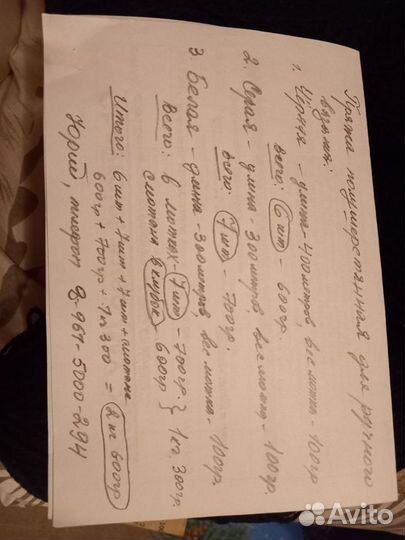 Пряжа полушерстянная для ручного
вязания:
1. Чёрная - длина - 400 метров, вес мотка - 100гр
всего: 6 шт - 600гр.
2. Серая - длина 300 метров, вес мотка - 100гр.
всего: 7 шт - 700гр.
3. Белая - длина - 300 метров вес мотка - 100гр.
всего: в мотках - 7 шт - 700гр. } 1 кг. 300гр.
смотана в клубок 600гр
Итого: 6 шт + 7 шт + 7 шт +
600гр + 700гр + 1 кг 300 = 2 кг 600гр
Юрий, телефон 8-961-5000-294
Avito